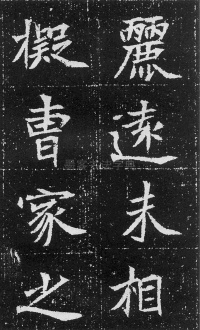 麗遠未相
擬曹家之